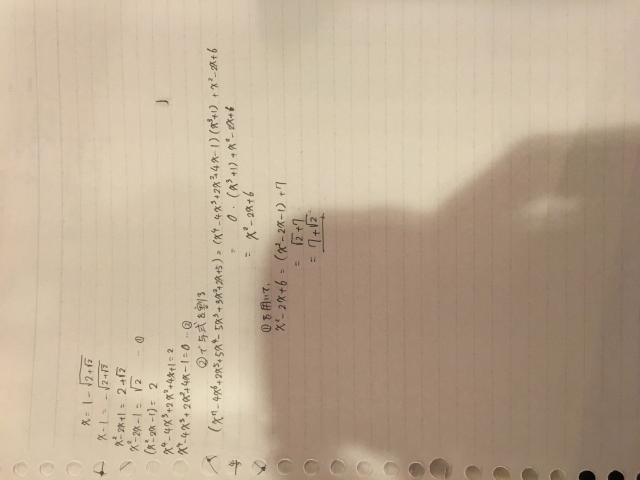 x = 1 - √(2+√2)
x-1 = -√(2+√2)
x²-2x+1 = 2+√2
x²-2x-1 = √2 … ①
(x²-2x-1)² = 2
x⁴-4x³+2x²+4x+1 = 2
x⁴-4x³+2x²+4x-1 = 0 … ②
②で与式を割る
(x⁷-4x⁶+2x⁵+5x⁴-5x³+3x²+2x+5) = (x⁴-4x³+2x²+4x-1)(x³+1)+x²-2x+6
= 0・(x³+1)+x²-2x+6
= x²-2x+6
①を用いて、
x²-2x+6 = (x²-2x-1)+7
= √2+7
= 7+√2